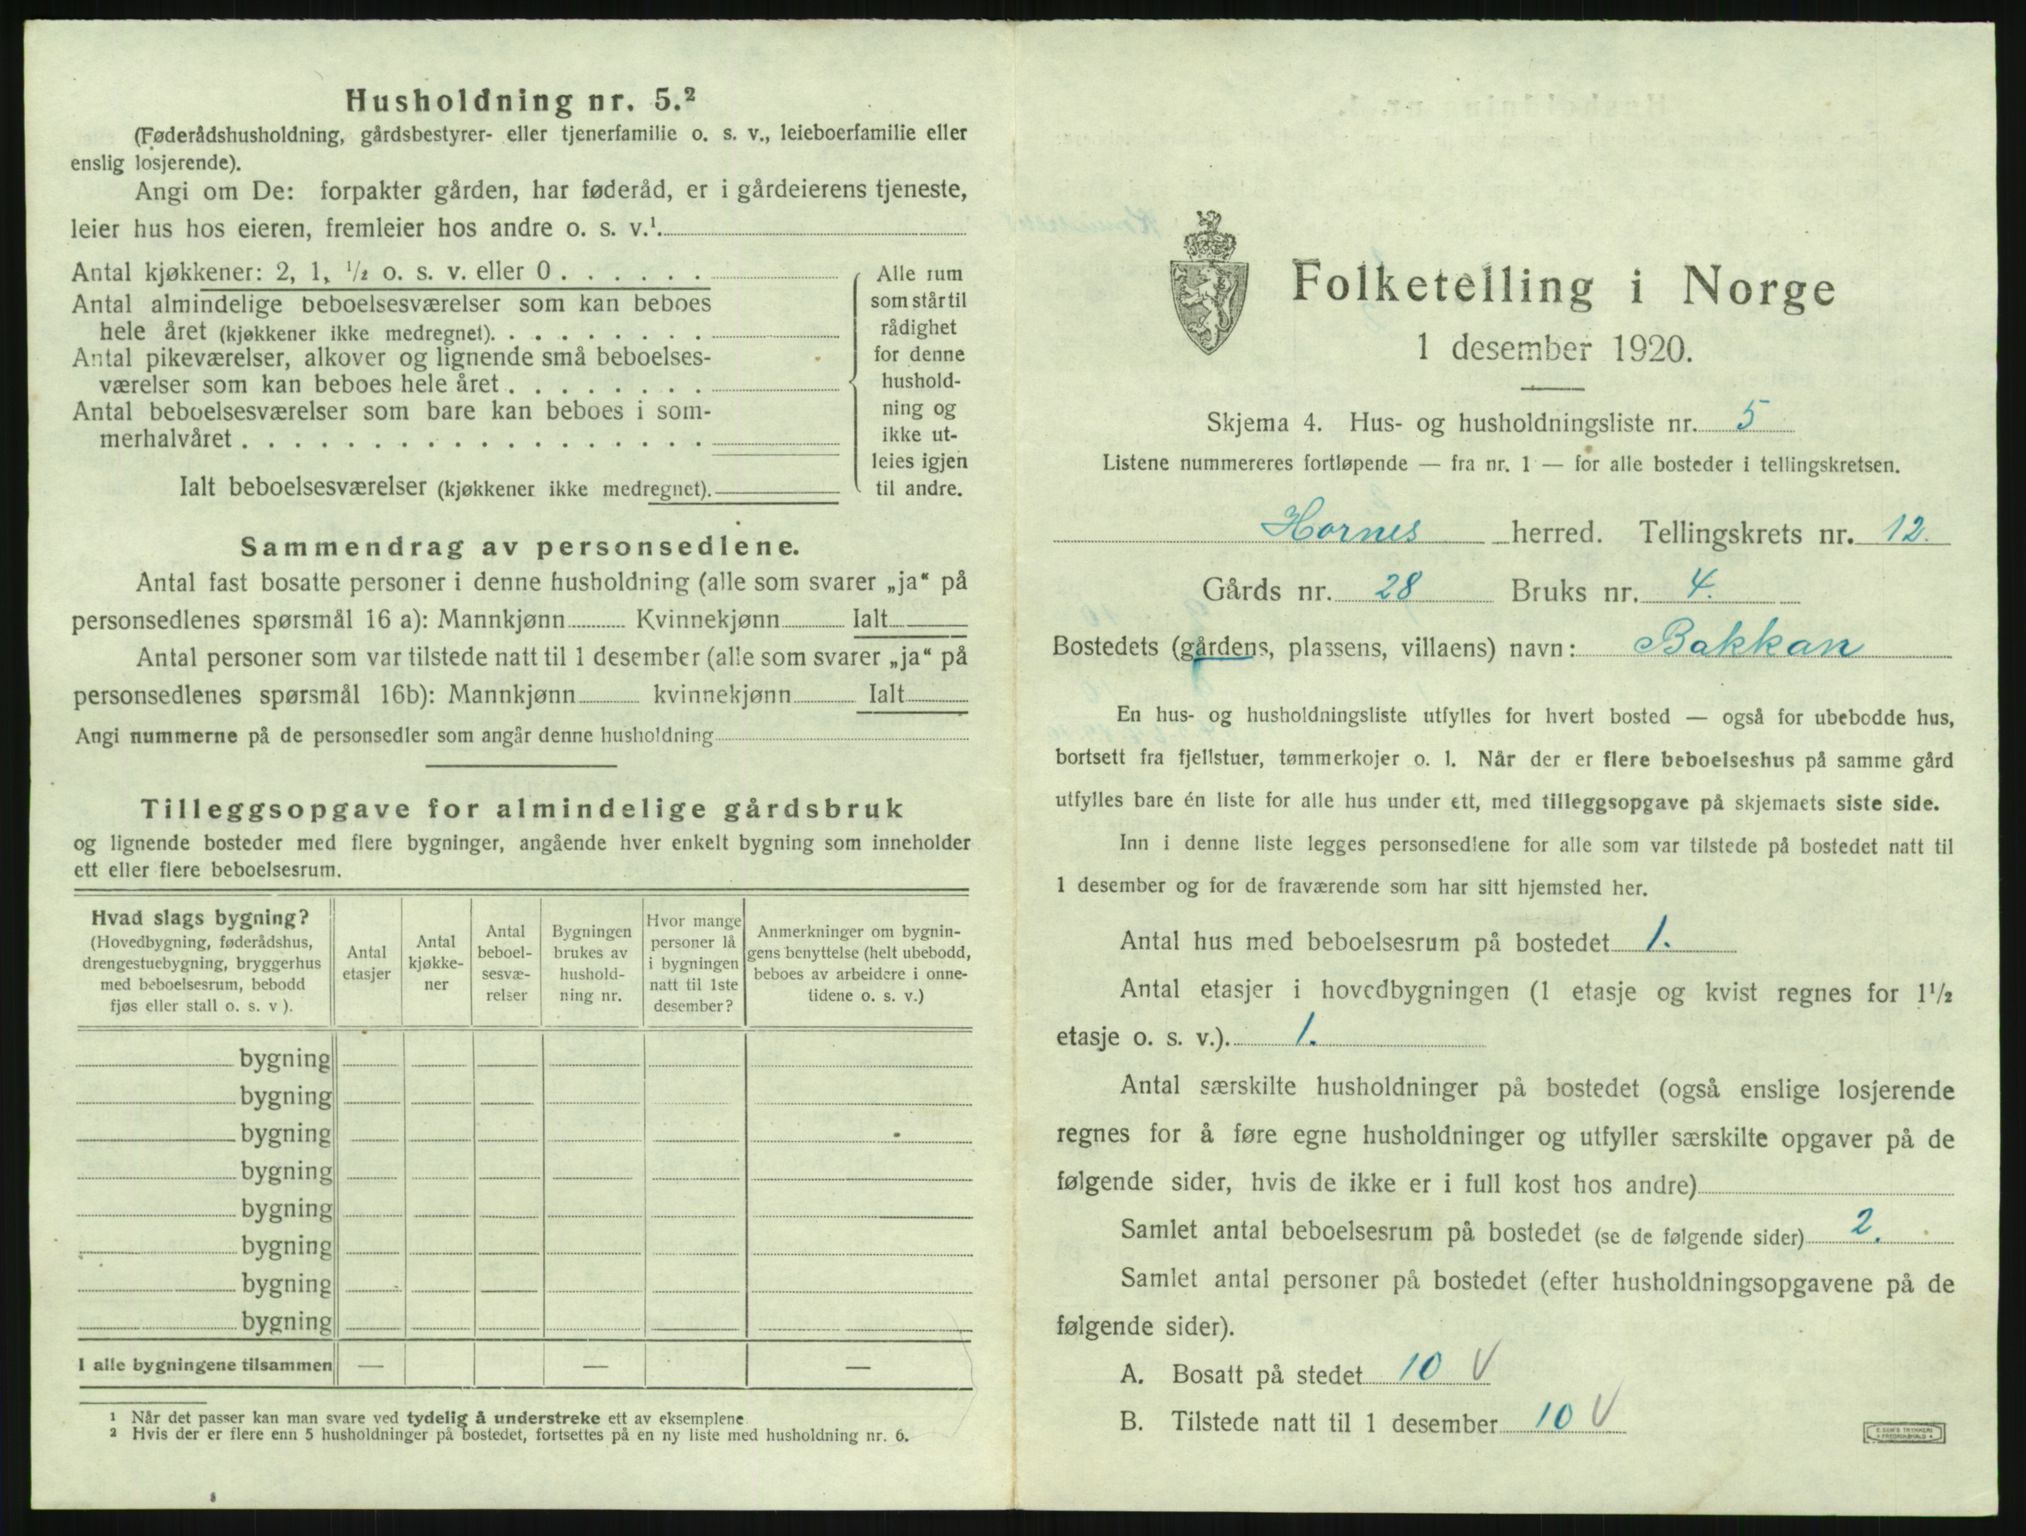 Husholdning nr. 5.²
(Føderådshusholdning, gårdsbestyrer- eller tjenerfamilie o. s. v., leieboerfamilie eller
enslig losjerende).
Angi om De: forpakter gården, har føderåd, er i gårdeierens tjeneste,
leier hus hos eieren, fremleier hos andre o. s. v.¹
Antal kjøkkener: 2, 1, ½ o. s. v. eller 0 . . . . . .
Antal almindelige beboelsesværelser som kan beboes
hele året (kjøkkener ikke medregnet). . . . . . . . .
Antal pikeværelser, alkover og lignende små beboelses-
værelser som kan beboes hele året . . . . . . . .
Antal beboelsesværelser som bare kan beboes i som-
merhalvåret . . . . . . . . . . . . . . . . . .
Ialt beboelsesværelser (kjøkkener ikke medregnet).
Alle rum
som står til
rådighet
for denne
hushold-
ning og
ikke ut-
leies igjen
til andre.
Sammendrag av personsedlene.
Antal fast bosatte personer i denne husholdning (alle som svarer „ja“ på
personsedlenes spørsmål 16 a): Mannkjønn Kvinnekjønn Ialt
Antal personer som var tilstede natt til 1 desember (alle som svarer „ja“ på
personsedlenes spørsmål 16b): Mannkjønn kvinnekjønn Ialt
Angi nummerne på de personsedler som angår denne husholdning
Tilleggsopgave for almindelige gårdsbruk
og lignende bosteder med flere bygninger, angående hver enkelt bygning som inneholder
ett eller flere beboelsesrum.
Hvad slags bygning?
(Hovedbygning, føderådshus,
drengestuebygning, bryggerhus
med beboelsesrum, bebodd
fjøs eller stall o. s. v ).
Antal
etasjer
Antal
kjøkke-
ner
Antal
beboel-
sesvæ-
relser
Bygningen
brukes av
hushold-
ning nr.
Hvor mange
personer lå
i bygningen
natt til 1ste
desember?
Anmerkninger om bygnin-
gens benyttelse (helt ubebodd,
beboes av arbeidere i onne-
tidene o. s. v.)
bygning
bygning
bygning
bygning
bygning
bygning
bygning
bygning
I alle bygningene tilsammen — — —
¹ Når det passer kan man svare ved tydelig å understreke ett av eksemplene
² Hvis der er flere enn 5 husholdninger på bostedet, fortsettes på en ny liste med husholdning nr. 6.
Folketelling i Norge
1 desember 1920.
Skjema 4. Hus- og husholdningsliste nr. 5
Listene nummereres fortløpende — fra nr. 1 — for alle bosteder i tellingskretsen.
Hornes herred. Tellingskrets nr. 12.
Gårds nr. 28 Bruks nr. 4.
Bostedets (gårdens, plassens, villaens) navn: Bakkan
En hus- og husholdningsliste utfylles for hvert bosted — også for ubebodde hus,
bortsett fra fjellstuer, tømmerkojer o. l. Når der er flere beboelseshus på samme gård
utfylles bare én liste for alle hus under ett, med tilleggsopgave på skjemaets siste side.
Inn i denne liste legges personsedlene for alle som var tilstede på bostedet natt til
1 desember og for de fraværende som har sitt hjemsted her.
Antal hus med beboelsesrum på bostedet 1.
Antal etasjer i hovedbygningen (1 etasje og kvist regnes for 1½
etasje o. s. v.). 1.
Antal særskilte husholdninger på bostedet (også enslige losjerende
regnes for å føre egne husholdninger og utfyller særskilte opgaver på de
følgende sider, hvis de ikke er i full kost hos andre)
Samlet antal beboelsesrum på bostedet (se de følgende sider) 2.
Samlet antal personer på bostedet (efter husholdningsopgavene på de
følgende sider).
A. Bosatt på stedet 10 V
B. Tilstede natt til 1 desember 10 V